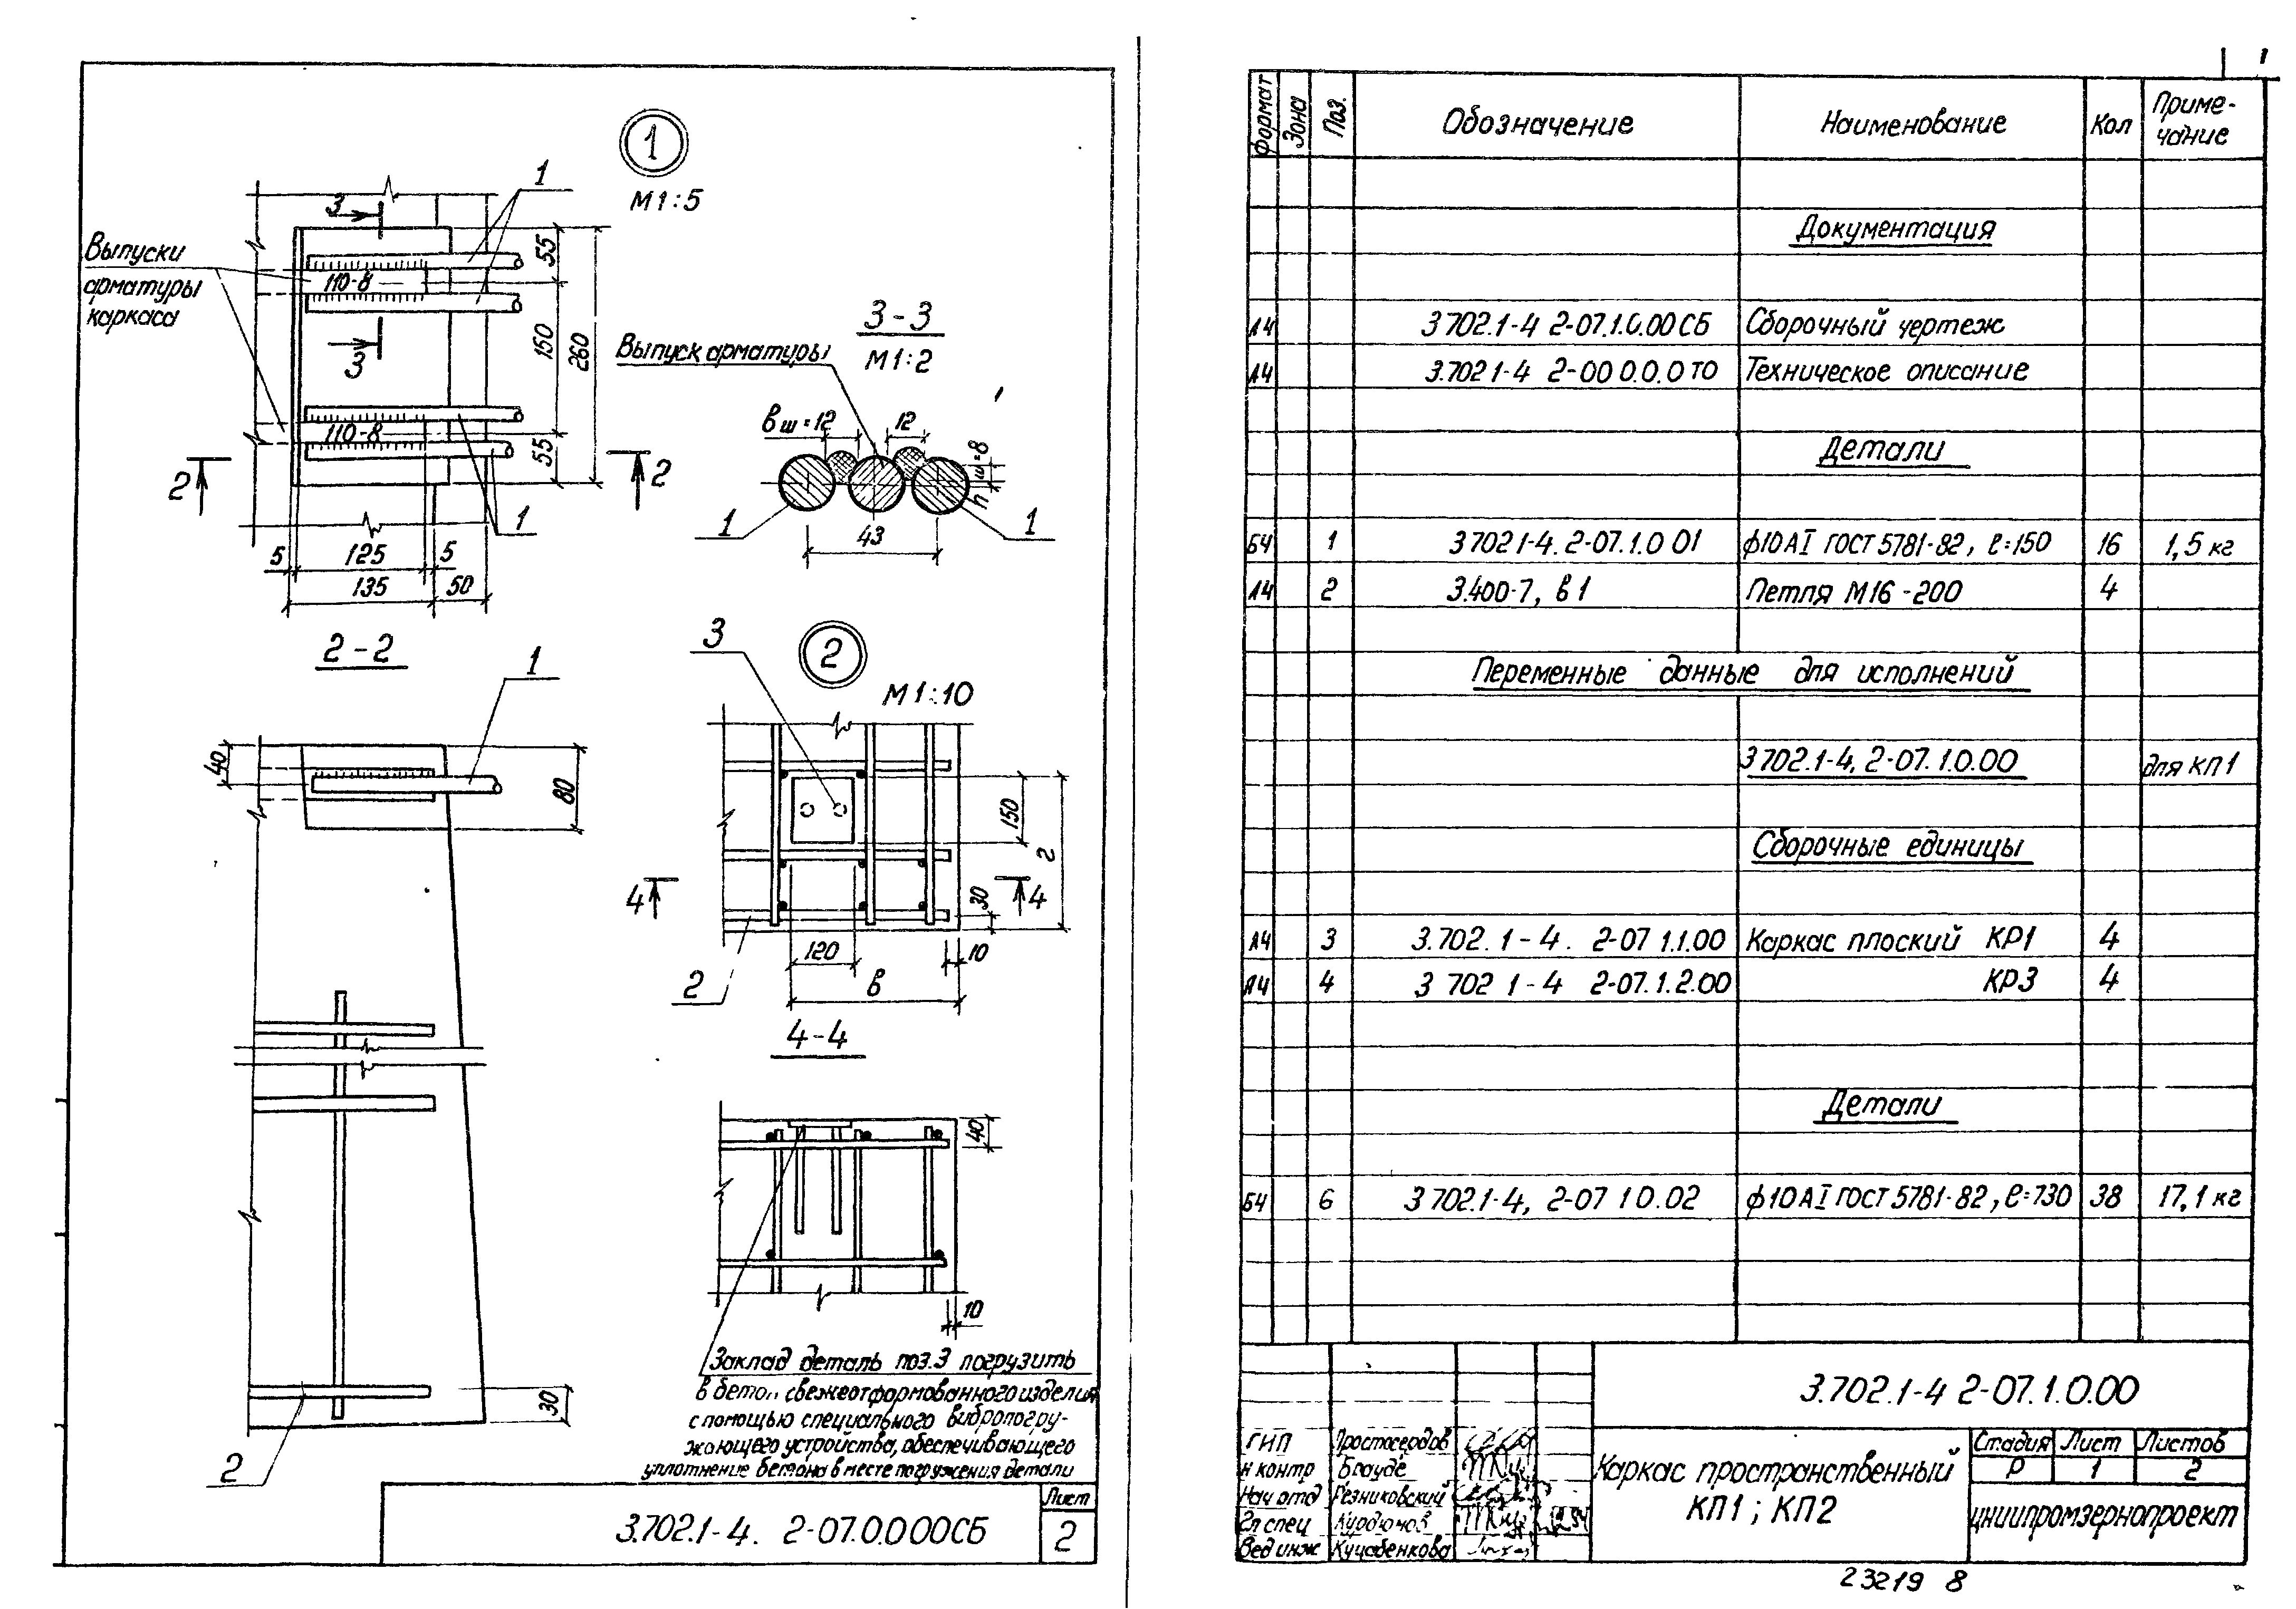 1
М1:5
3
1
Выпуски
арматуры
каркаса
110-8
110-8
3
55
150
260
55
2
2
1
5
125
5
135
50
3-3
М1:2
Выпуск арматуры
вш=12
12
hш=8
1
1
43
2-2
1
40
80
30
2
2
М1:10
3
150
г
30
4
4
120
10
в
2
4-4
40
10
Заклад деталь поз.3 погрузить
в бетон свежеотформованного изделия
с помощью специального вибропогру-
жающего устройства, обеспечивающего
уплотнение бетона в месте погружения детали
3.702.1-4. 2-07.0.0.00СБ
Лист
2
1
Формат Зона Поз. Обозначение Наименование Кол Приме-
чание
Документация
А4 3702.1-4 2-07.1.0.00СБ Сборочный чертеж
А4 3.702 1-4 2-00 0.0.0 ТО Техническое описание
Детали
БЧ 1 3 702 1-4. 2-07.1.0 01 ф10АI ГОСТ 5781-82, ℓ=150 16 1,5 кг
А4 2 3.400-7, в 1 Петля М16-200 4
Переменные данные для исполнений
3 702.1-4, 2-07.1.0.00 для КП1
Сборочные единицы
А4 3 3.702. 1-4. 2-07 1.1.00 Каркас плоский КР1 4
А4 4 3 702 1-4 2-07.1.2.00 КР3 4
Детали
БЧ 6 3 702.1-4, 2-07 1 0.02 ф10АI ГОСТ 5781-82, ℓ=730 38 17,1 кг
3.702.1-4 2-07.1.0.00
ГИП Простосердов
Н контр Брауде
Нач отд Резниковский
Гл спец Курдюмов
Вед инж Кучабенкова
Каркас пространственный
КП1 ; КП2
Стадия Лист Листов
Р 1 2
ЦНИИпромзернопроект
23219 8